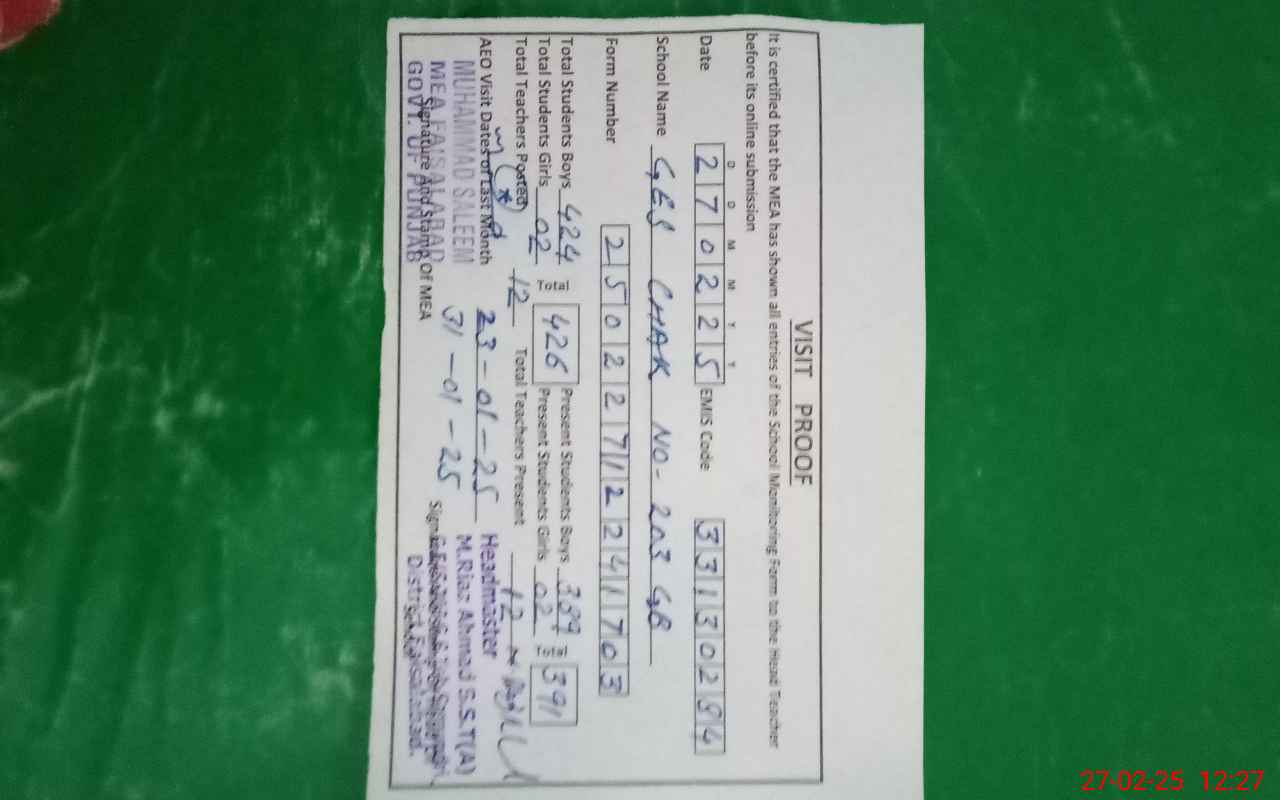 VISIT PROOF
It is certified that the MEA has shown all entries of the School Monitoring Form to the Head Teacher
before its online submission
D D M M Y Y
Date 270225 EMIS Code 331302
School Name GES CHAK NO- 203 GB
Form Number 25022712241703
Total Students Boys 424 Total 426 Present Students Boys 389
Total Students Girls 02 Present Students Girls 02 391
Total Teachers Posted 12 Total Teachers Present 12
AEO Visit Dates of Last Month 23-01-25
31-01-25
MUHAMMAD SALEEM
MEA FAISALABAD
GOVT. OF PUNJAB
Signature And Stamp Of MEA
Headmaster
M.Riaz Ahmad S.S.T(A)
District Faisalabad.
27-02-25 12:27